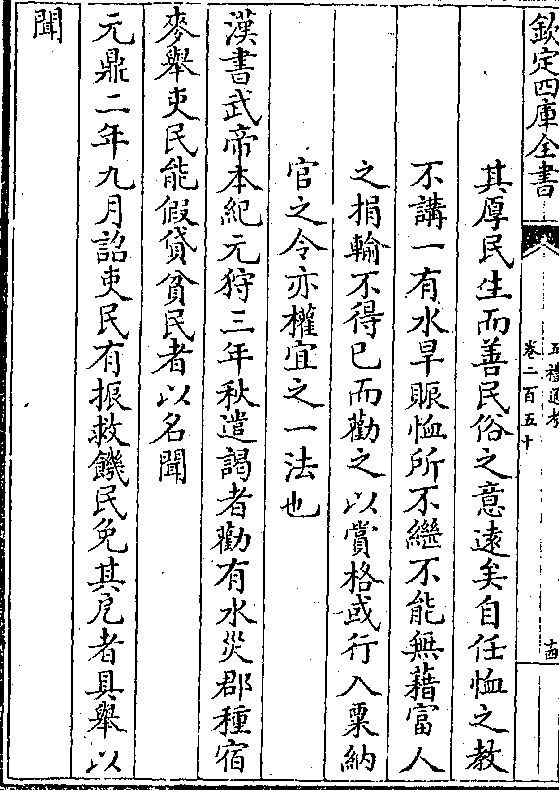 欽定四庫全書
五禮通考
卷二百五十
其厚民生而善民俗之意遠矣自任恤之教
不講一有水旱賑恤所不繼不能無藉富人
之捐輸不得已而勸之以賞格或行入粟納
官之令亦權宜之一法也
漢書武帝本紀元狩三年秋遣謁者勸有水災郡種宿
麥舉吏民能假貸貧民者以名聞
元鼎二年九月詔吏民有振救饑民免其戹者具舉以
聞